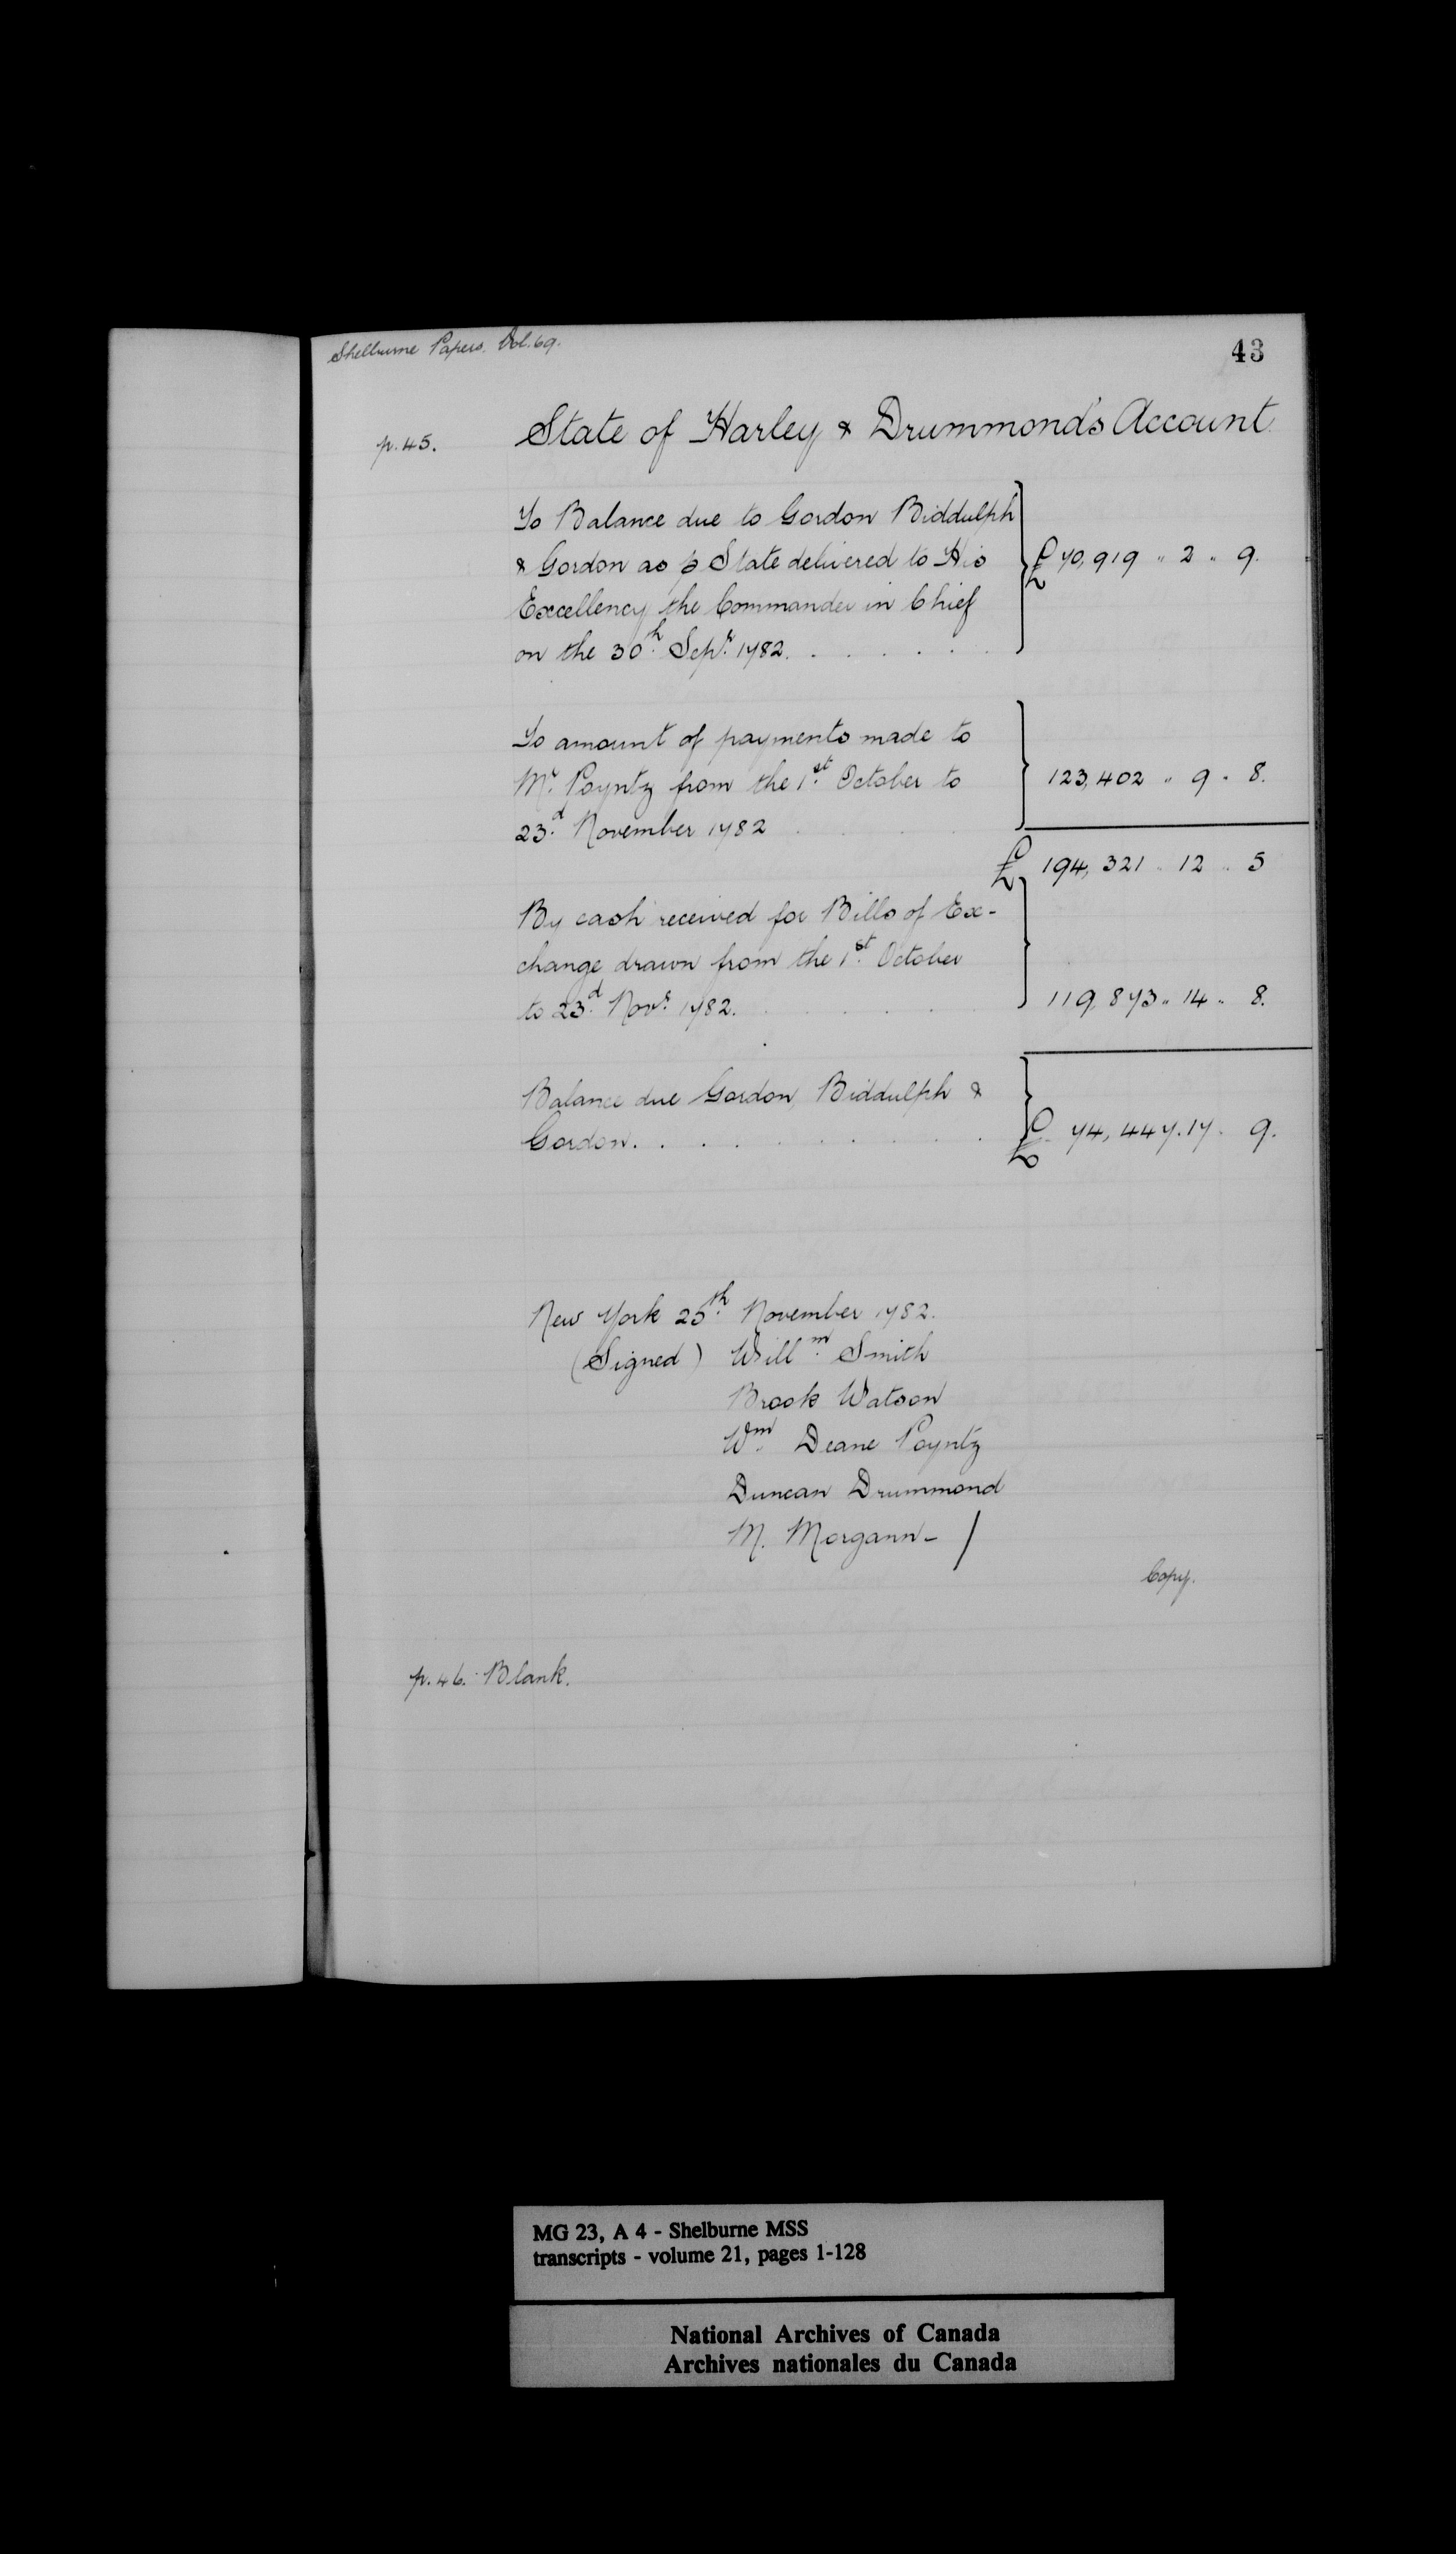 Shelburne Papers. Vol. 69.
43
p. 45.
State of Harley & Drummond's Account.
To Balance due to Gordon Biddulph
& Gordon as p State delivered to His
£ 70,919 " 2 " 9.
Excellency the Commander in Chief
on the 30th. Sepr. 1782. . . . . . .
To amount of payments made to
Mr. Poyntz from the 1st. October to
123,402 " 9 " 8.
23.d November 1782 . . .
£ 194,321 " 12 " 5
By cash received for Bills of Ex-
change drawn from the 1st. October
to 23.d Novr. 1782. . . . .
119,873 " 14 " 8.
Balance due Gordon, Biddulph &
Gordon. . . . . . . . .
£ 74,447. 17. 9.
New York 25th. November 1782.
(Signed) Willm. Smith
Brook Watson
Wm. Deane Poyntz
Duncan Drummond
M. Morgann - /
Copy.
p. 46. Blank.
MG 23, A 4 - Shelburne MSS
transcripts - volume 21, pages 1-128
National Archives of Canada
Archives nationales du Canada